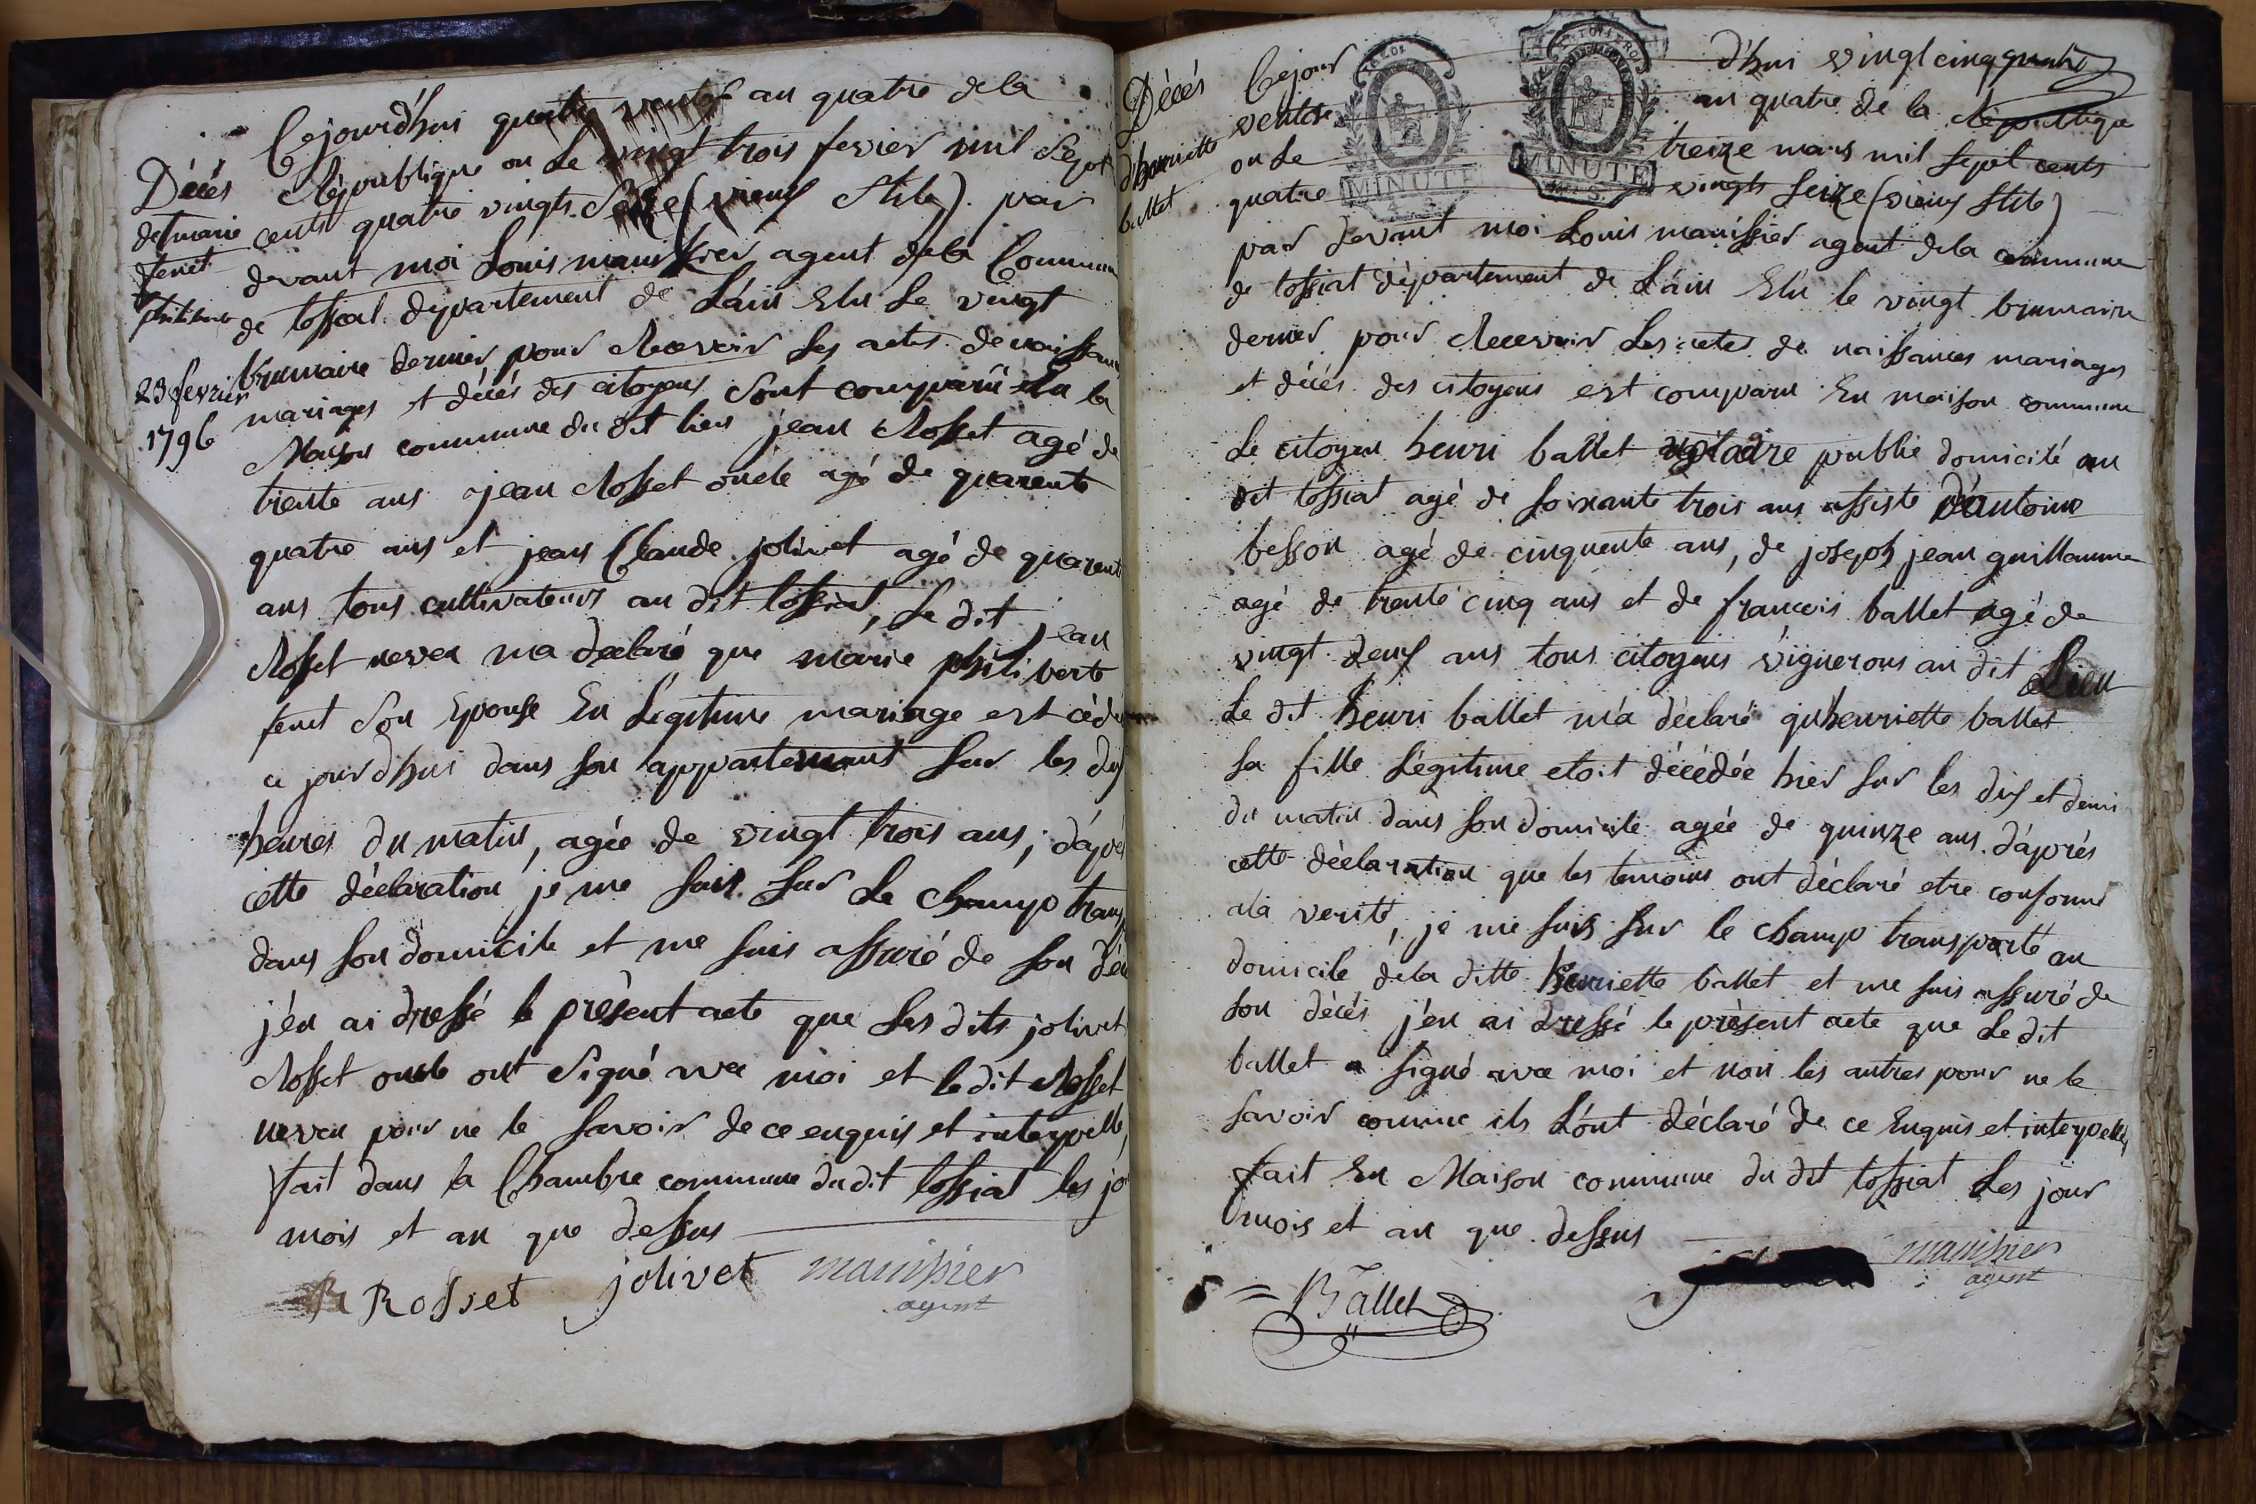 Décès
de marie
fenet
philiberte
23 fevrier
1796
Cejourd'hui quatre ventose an quatre de la
République ou le vingt trois fevrier mil sept
cents quatre vingts seize (vieux stile) par
devant moi Louis manissier agent dela Commune
de tossiat département de L'ain Elu le vingt
brumaire dernier pour Recevoir les actes de naissance
mariages et décés des citoyens sont comparu En la
Maison commune du dit lieu jean Rosset agé de
trente ans jean Rosset oncle agé de quarente
quatre ans et jean Claude jolivet agé de quarent
ans tous cultivateurs au dit tossiat, le dit jean
Rosset neveu ma declaré que marie philiberte
fenet son Epouse En Légitime mariage est cédé
ce jourdhui dans son appartement sur les dix
heures du matin, agée de vingt trois ans, d'apré
cette déclaration je me suis sur le champ transp
dans son domicile et me suis assuré de son déc
j'en ai dressé le présent acte que les dits jolivet
Rosset oncle ont signé avec moi et le dit Rosset
neveu pour ne le savoir de ce enquis et interpellé,
fait dans la Chambre commune du dit tossiat les jo
mois et an que dessus
R Rosset jolivet manissier
agent
Décés
d'henriette
ballet
Cejour d'hui vingt cinq
ventose an quatre de la République
ou le treize mars mil sept cents
quatre vingts seize (vieux stile)
MINUTE
MINUTE
par devant moi Louis manissier agent dela commune
de tossiat département de L'ain Elu le vingt brumaire
dernier pour Recevoir les actes de naissances mariages
et décés des citoyens est comparu En maison commune
Le citoyen henri ballet notaire public domicilé au
dit tossiat agé de soixante trois ans assisté d'antoine
besson agé de cinquente ans, de joseph jean guillaume
agé de trente cinq ans et de francois ballet agé de
vingt deux ans tous citoyens vignerons au dit Lieu
Le dit henri ballet m'a déclaré qu'henriette ballet
sa fille Légitime etoit décédée hier sur les dix et demi
du matin dans son domicile agée de quinze ans. d'aprés
cette déclaration que les temoins ont déclaré etre conforme
ala verité, je me suis sur le champ transporté au
domicile dela ditte henriette ballet et me suis assuré de
son décés j'en ai dressé le présent acte que le dit
ballet a signé avec moi et non les autres pour ne le
savoir comme ils L'ont déclaré de ce Enquis et interpellé,
fait En Maison commune du dit tossiat Les jour
mois et an que dessus
Ballet manissier
agent